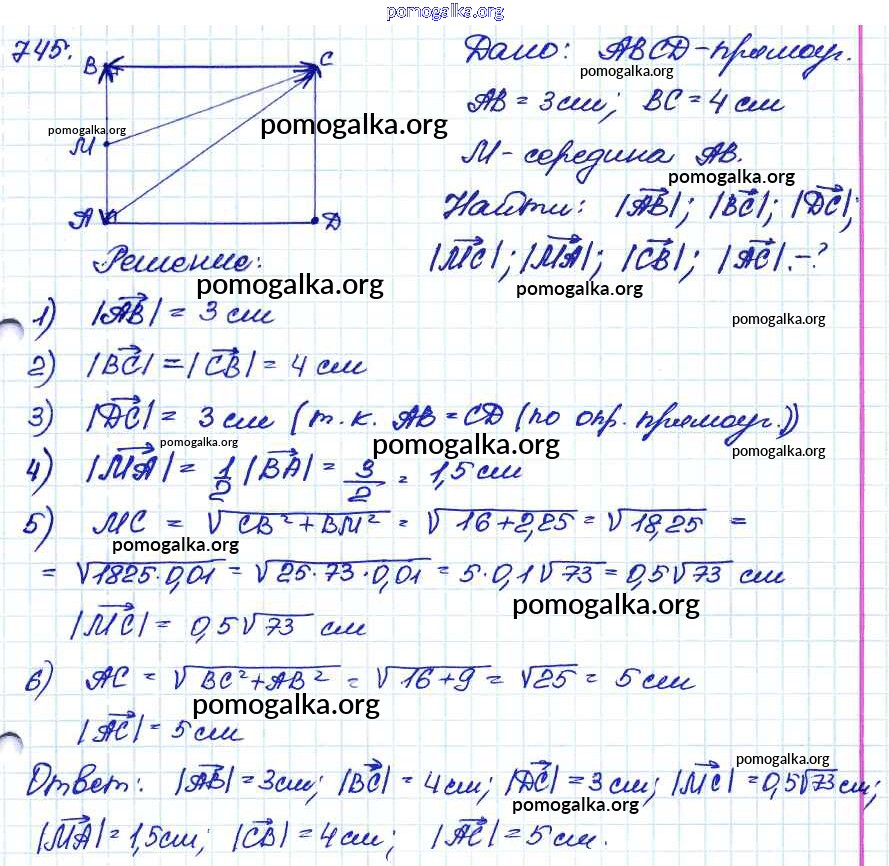 pomogalka.org
745.
B C
M
A D
Дано: ABCD-прямоуг.
pomogalka.org
AB = 3см; BC = 4 см
pomogalka.org
pomogalka.org
M - середина AB.
pomogalka.org
Найти: |AB|; |BC|; |DC|;
|MC|; |MA|; |CB|; |AC|.-?
Решение:
pomogalka.org
pomogalka.org
1) |AB| = 3 см
pomogalka.org
2) |BC| = |CB| = 4 см
3) |DC| = 3 см (т.к. AB = CD (по опр. прямоуг.))
pomogalka.org
pomogalka.org
pomogalka.org
4) |MA| = 1/2 |BA| = 3/2 = 1,5 см
5) MC = √CB²+BM² = √16+2,25 = √18,25 =
pomogalka.org
= √1825·0,01 = √25·73·0,01 = 5·0,1√73 = 0,5√73 см
pomogalka.org
|MC| = 0,5√73 см
6) AC = √BC²+AB² = √16+9 = √25 = 5 см
pomogalka.org
|AC| = 5 см
pomogalka.org
Ответ: |AB| = 3см; |BC| = 4 см; |DC| = 3 см; |MC| = 0,5√73 см;
pomogalka.org
|MA| = 1,5см; |CB| = 4 см; |AC| = 5 см.